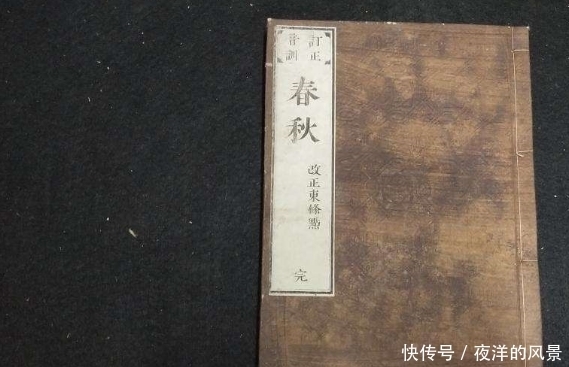 訂正
音訓
春秋
改正東條點
完
快传号/夜洋的风景